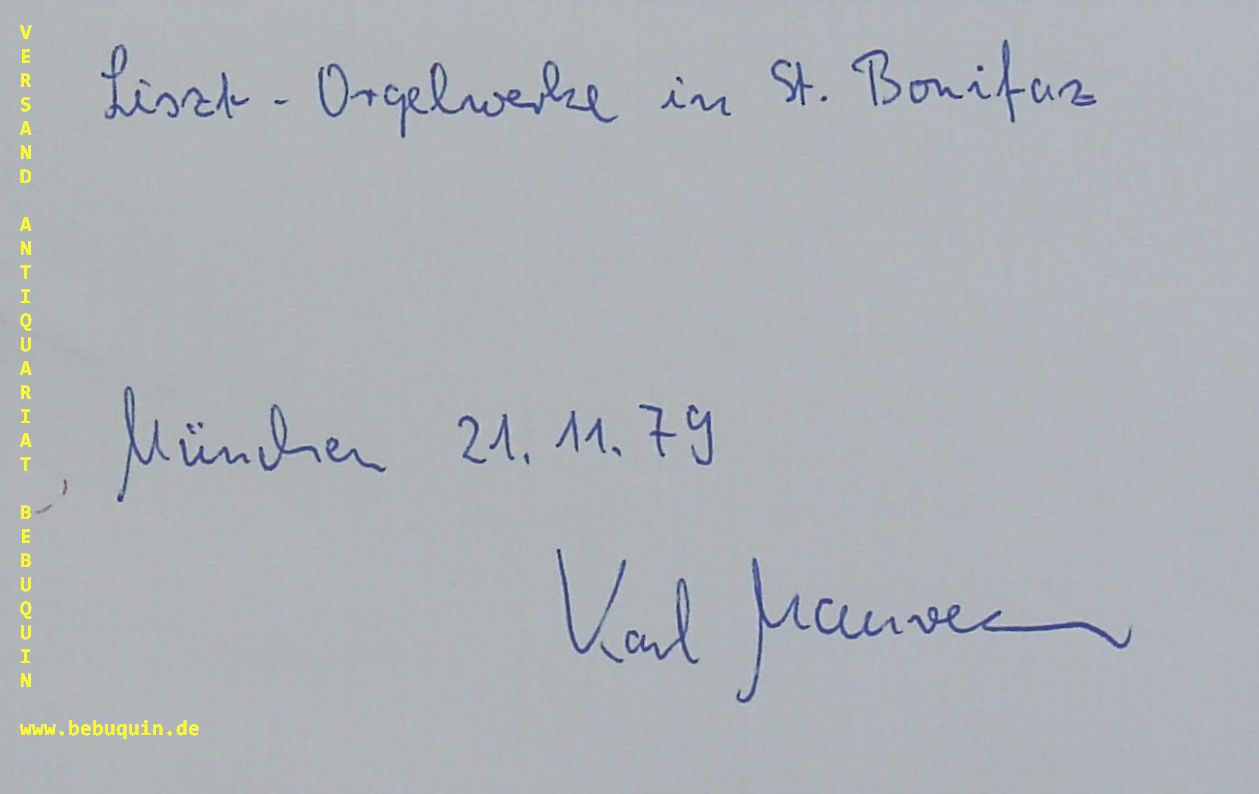 Liszt - Orgelwerke in St. Bonifaz
München 21. 11. 79
Karl Maureen
VERSAND ANTIQUARIAT BEBUQUIN
www.bebuquin.de